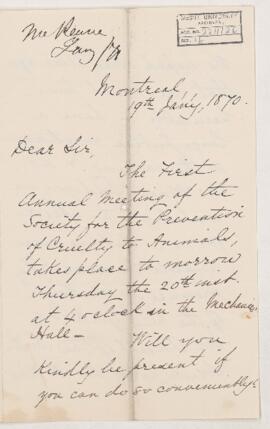 McGILL UNIVERSITY
ARCHIVES
ACC. NO.
REF.
Montreal
19th Jan'y, 1870.
Dear Sir,
The First
Annual Meeting of the
Society for the Prevention
of Cruelty to Animals,
takes place to morrow
Thursday the 20th inst
at 4 oclock in the Mechanics
Hall – Will you
Kindly be present if
you can do so conveniently